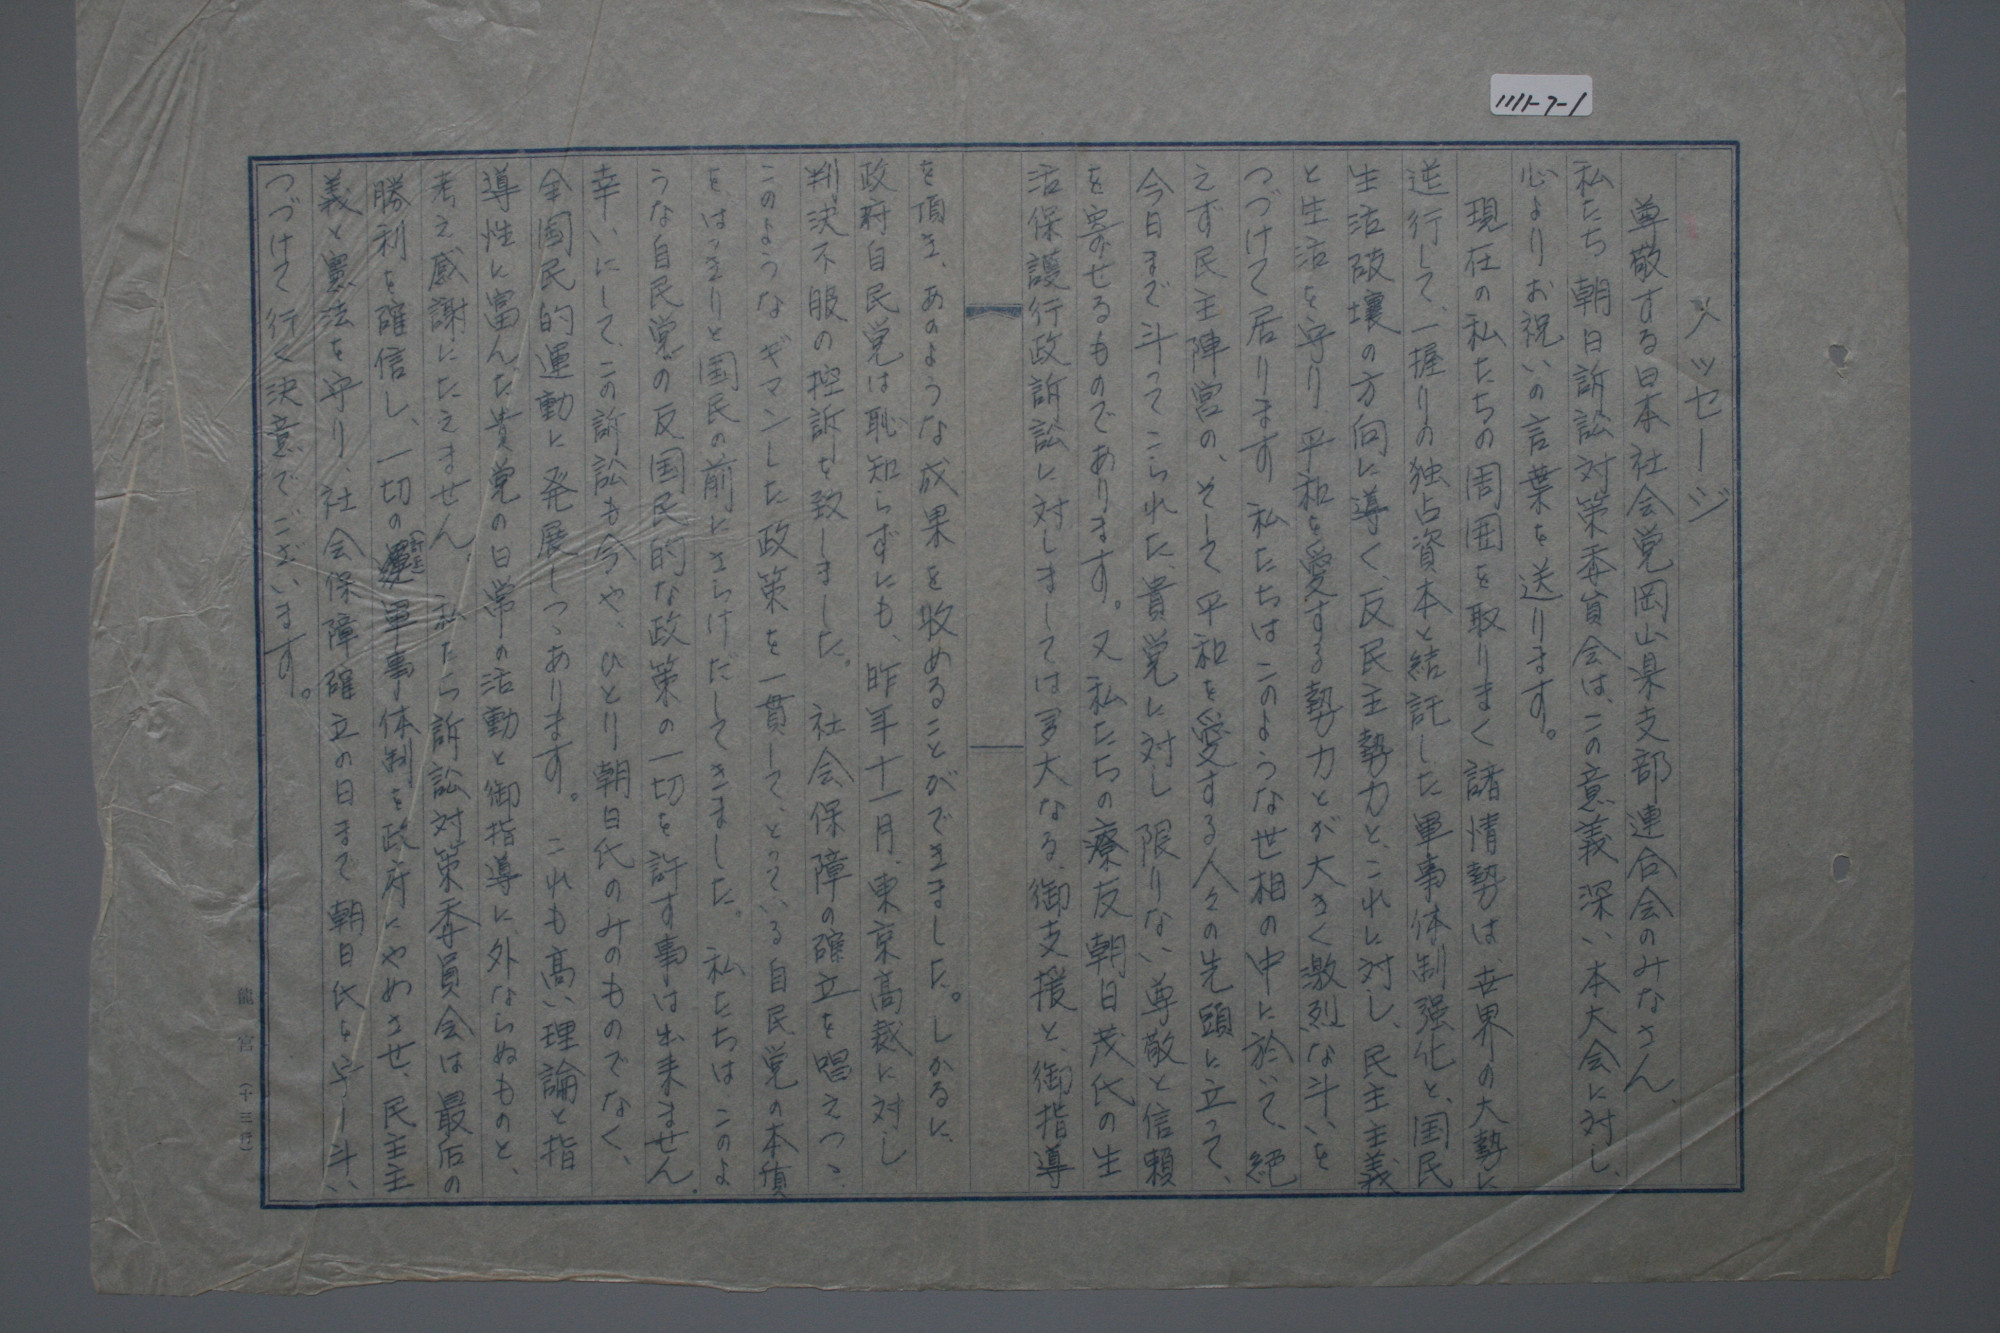 メッセージ
尊敬する日本社会党岡山県支部連合会のみなさん、
私たち朝日訴訟対策委員会は、この意義深い本大会に対し、
心よりお祝いの言葉を送ります。
現在の私たちの周囲を取りまく諸情勢は、世界の大勢に
逆行して、一握りの独占資本と結託した軍事体制強化と、国民
生活破壊の方向に導く、反民主勢力と、これに対し、民主主義
と生活を守り、平和を愛する勢力とが大きく激烈な斗いを
つづけて居ります 私たちはこのような世相の中に於いて、絶
えず民主陣営の、そして平和を愛する人々の先頭に立って、
今日まで斗ってこられた、貴党に対し限りない尊敬と信頼
を寄せるものであります。又私たちの療友朝日茂氏の生
活保護行政訴訟に対しましては多大なる、御支援と、御指導
を頂き、あのような成果を収めることができました。しかるに、
政府自民党は恥知らずにも、昨年十一月、東京高裁に対し
判決不服の控訴を致しました。 社会保障の確立を唱えつゝ、
このようなギマンした政策を一貫して、とっている自民党の本質
をはっきりと国民の前にさらけだしてきました。 私たちは、このよ
うな自民党の反国民的な政策の一切を許す事は出来ません。
幸いにして、この訴訟も今や、ひとり朝日氏のみのものでなく、
全国民的運動に発展しつゝあります。 これも高い理論と指
導性に富んだ貴党の日常の活動と御指導に、外ならぬものと、
考え感謝にたえません。 私たち訴訟対策委員会は最后の
勝利を確信し、一切の軍事体制を政府にやめさせ、民主主
義と憲法を守り、社会保障確立の日まで朝日氏を守り斗い
つづけて行く決意でございます。
龍宮(十三行)
1115-7-1